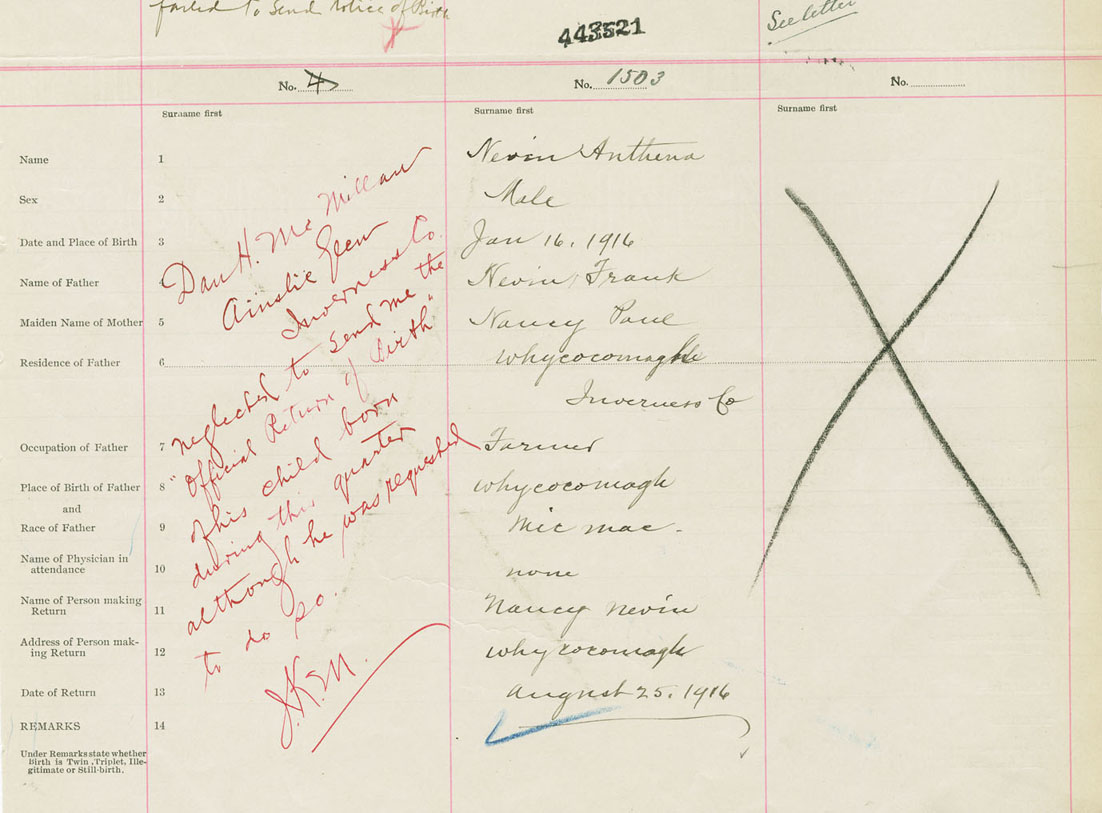 failed to Send Notice of Birth
443521
See letter
No. 4
No. 1503
No.
Surname first
Surname first
Surname first
Name 1 Nevin Anthena
Sex 2 Male
Date and Place of Birth 3 Jan 16, 1916
Name of Father 4 Nevin, Frank
Maiden Name of Mother 5 Nancy Paul
Residence of Father 6 Whycocomagh
Inverness Co
Occupation of Father 7 Farmer
Place of Birth of Father 8 Whycocomagh
and
Race of Father 9 Mic mac.
Name of Physician in
attendance 10 none
Name of Person making
Return 11 Nancy Nevin
Address of Person mak-
ing Return 12 Whycocomagh
Date of Return 13 August 25, 1916
REMARKS 14
Under Remarks state whether
Birth is Twin, Triplet, Ille-
gitimate or Still-birth.
Dan H. McMillan
Ainslie Glen
Inverness Co.
neglected to send me the
"Official Return of Birth"
of his child born
during this quarter
although he was requested
to do so.
J.K.M.